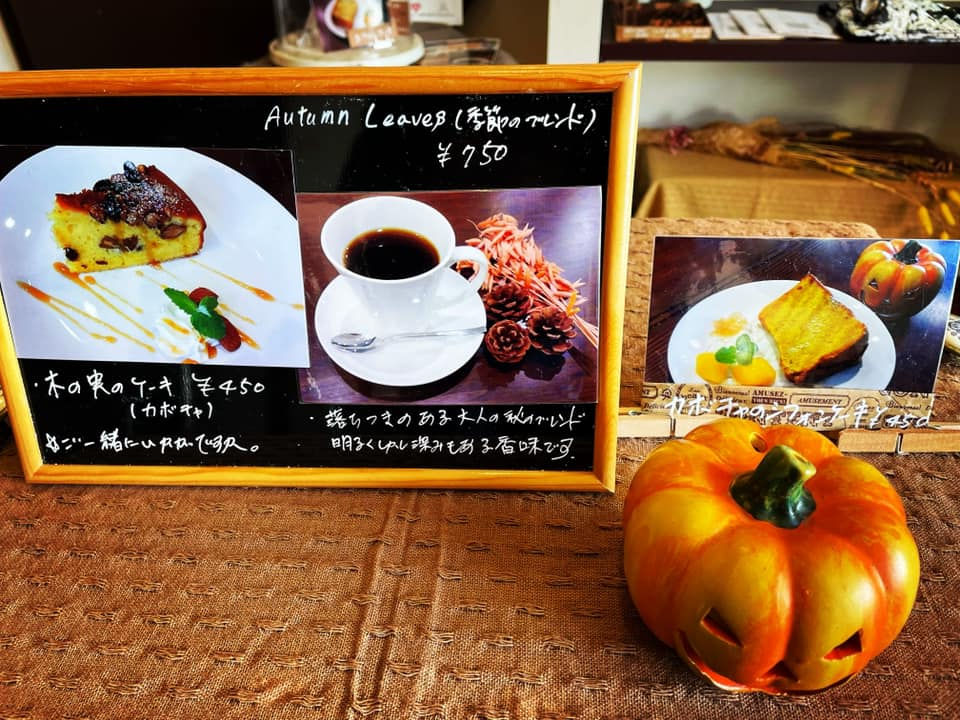 Autumn Leaves (季節のブレンド)
¥750
・木の実のケーキ ¥450
(カボチャ)
・落ちつきのある大人の秋のブレンド
明るく少し深みもある香味です
カボチャのシフォンケーキ ¥450
AMUSEMENT